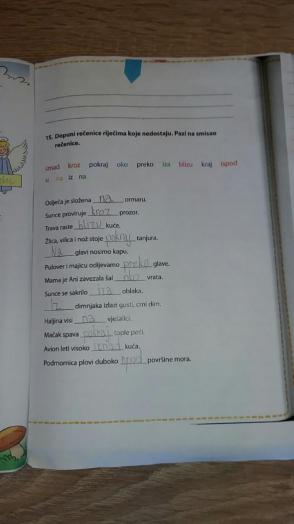 15. Dopuni rečenice riječima koje nedostaju. Pazi na smisao
rečenice.
iznad kroz pokraj oko preko iza blizu kraj ispod
u na iz na
Odjeća je složena na ormaru.
Sunce proviruje kroz prozor.
Trava raste blizu kuće.
Žlica, vilica i nož stoje pokraj tanjura.
Na glavi nosimo kapu.
Pulover i majicu odijevamo preko glave.
Mama je Ani zavezala šal oko vrata.
Sunce se sakrilo iza oblaka.
Iz dimnjaka izlazi gusti, crni dim.
Haljina visi na vješalici.
Mačak spava pokraj tople peći.
Avion leti visoko iznad kuća.
Podmornica plovi duboko ispod površine mora.